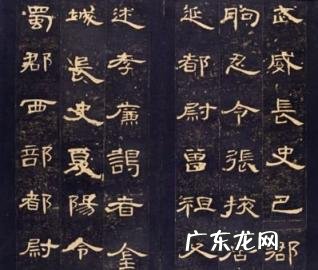 武威長史巴郡
朐忍令張掖居
延都尉曾祖父
述孝廉謁者金
城長史夏陽令
蜀郡西部都尉
广东龙网